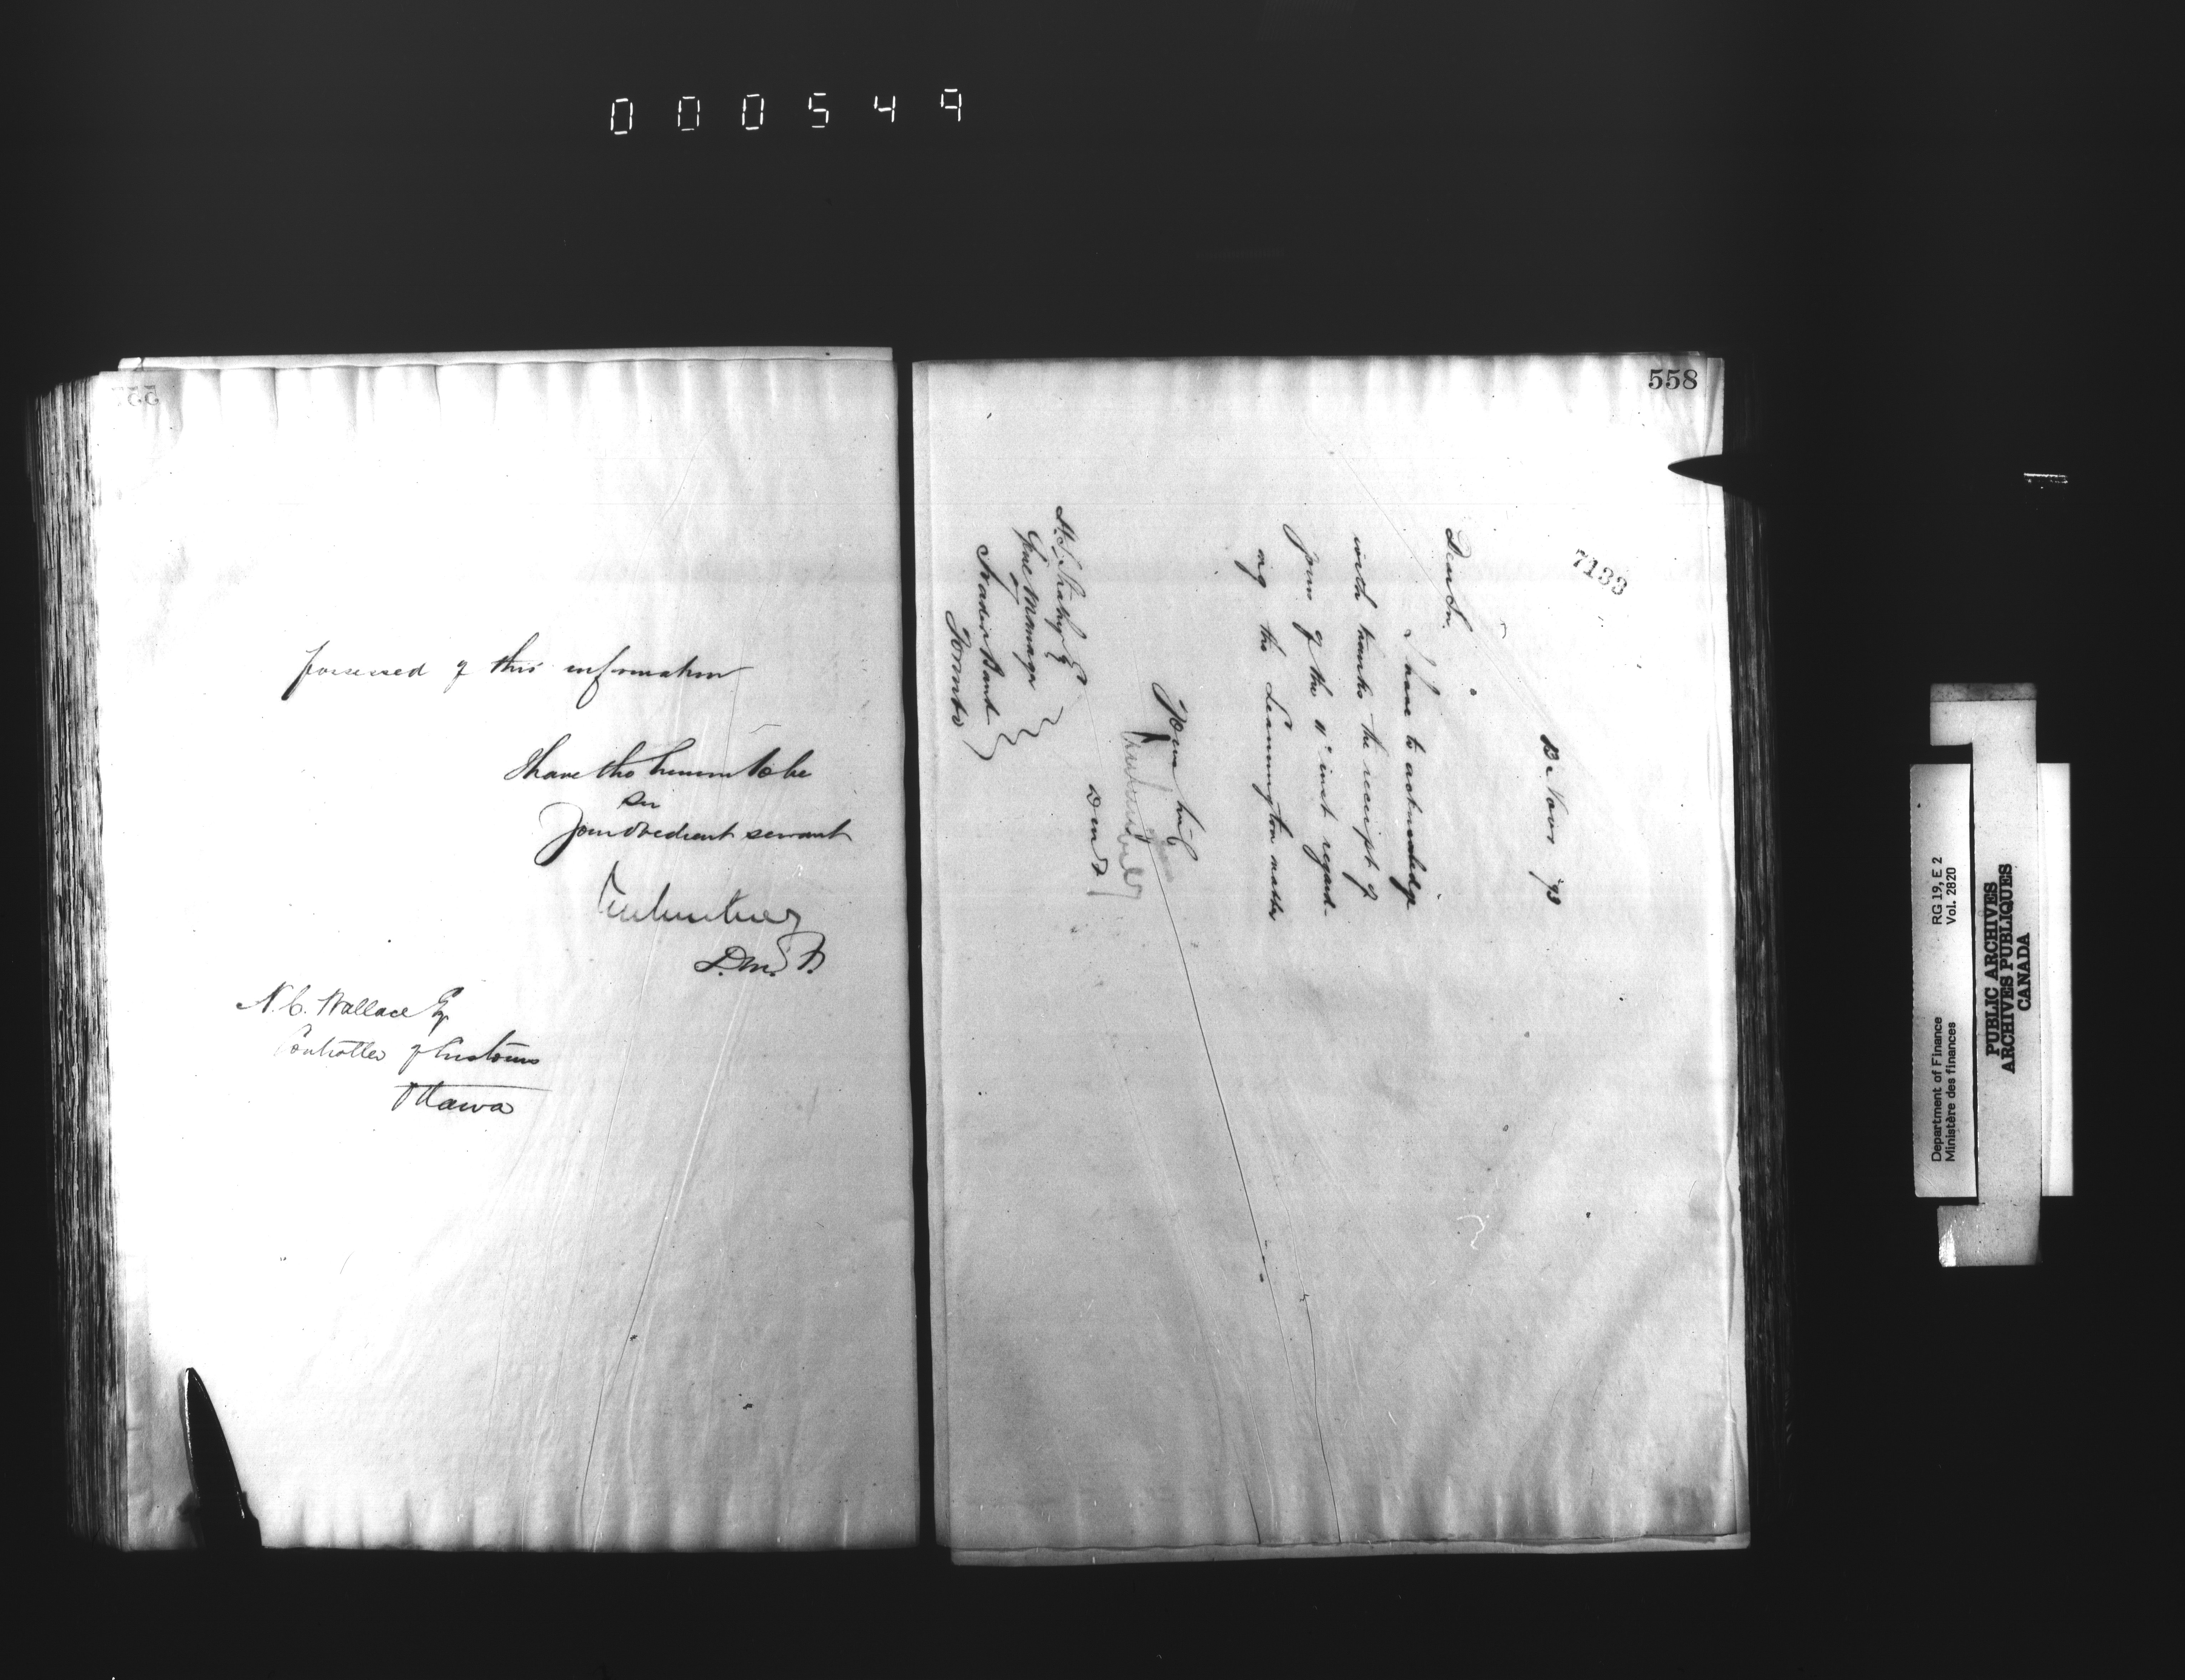 000549
possessed of this information
I have the honour to be
Sir
Your obedient servant
D.M.F.
N.C. Wallace Esq
Controller of Customs
Ottawa
558
7133
13 Novr 93
Dear Sir.
I have to acknowledge
with thanks the receipt of
yours of the 11th inst regard-
ing the Leamington matter
Yours truly
D M F
H.S. Strathy Esq
Genl Manager
Traders Bank
Toronto
Department of Finance
Ministère des finances
RG 19, E 2
Vol. 2820
PUBLIC ARCHIVES
ARCHIVES PUBLIQUES
CANADA